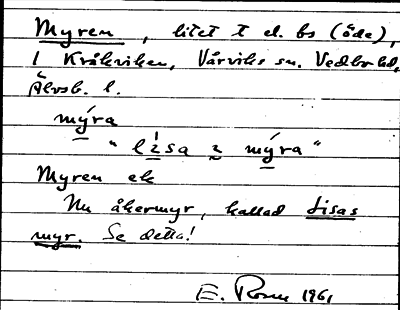 Myren, litet t el. bs (öde),
1 Kråkviken, Vårviks sn. Vedbo hd,
Älvsb. l.
mýra
"lisa i mýra"
Myren ek
Nu åkermyr, kallad Lisas
myr. Se detta!
E. Rosen 1961